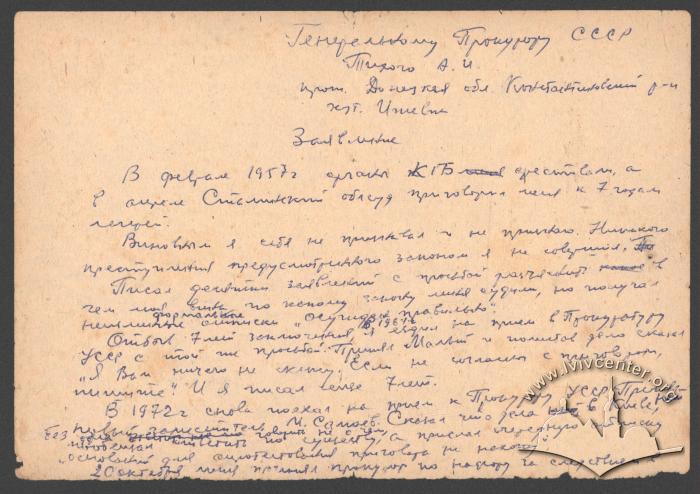 Генеральному Прокурору СССР
Тихого А.И.
прож. Донецкая обл. Константиновский р-н
хут. Ижевка
Заявление
В феврале 1957г органы КГБ меня арестовали, а
в апреле Сталинский облсуд приговорил меня к 7 годам
лагерей.
Виновным я себя не признавал и не признаю. Никакого
преступления предусмотренного законом я не совершил.
Писал десятки заявлений с просьбой разъяснить в
чем моя вина, по какому закону меня судили, но получал
неизменные формальные отписки "осужден правильно".
Отбыв 7 лет заключения, в 1964г я ездил на прием в Прокуратуру
УССР с той же просьбой. Принял Малый и полистав дело сказал
"Я Вам ничего не скажу. Если не согласны с приговором,
пишите". И я писал еще 7 лет.
В 1972г снова поехал на прием к Прокурору УССР. Принял
новый заместитель И. Самаев. Сказал что дела в Киеве
без дела говорить не о чем
ответить по существу, а прислал очередную отписку
"оснований для опротестования приговора не нахожу".
20 октября меня принял прокурор по надзору за следствием в
www.lvivcenter.org